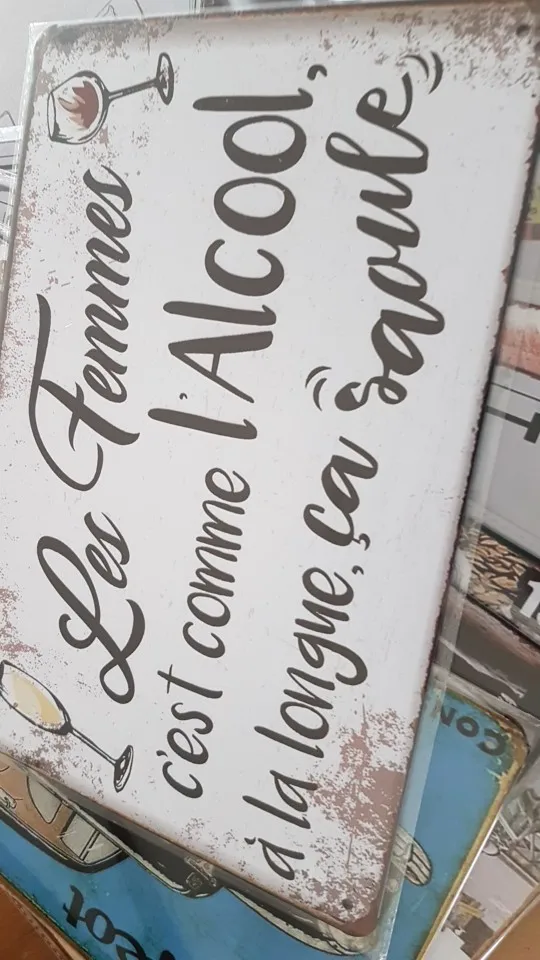 Les Femmes
c'est comme l'Alcool,
à la longue, ça saoule